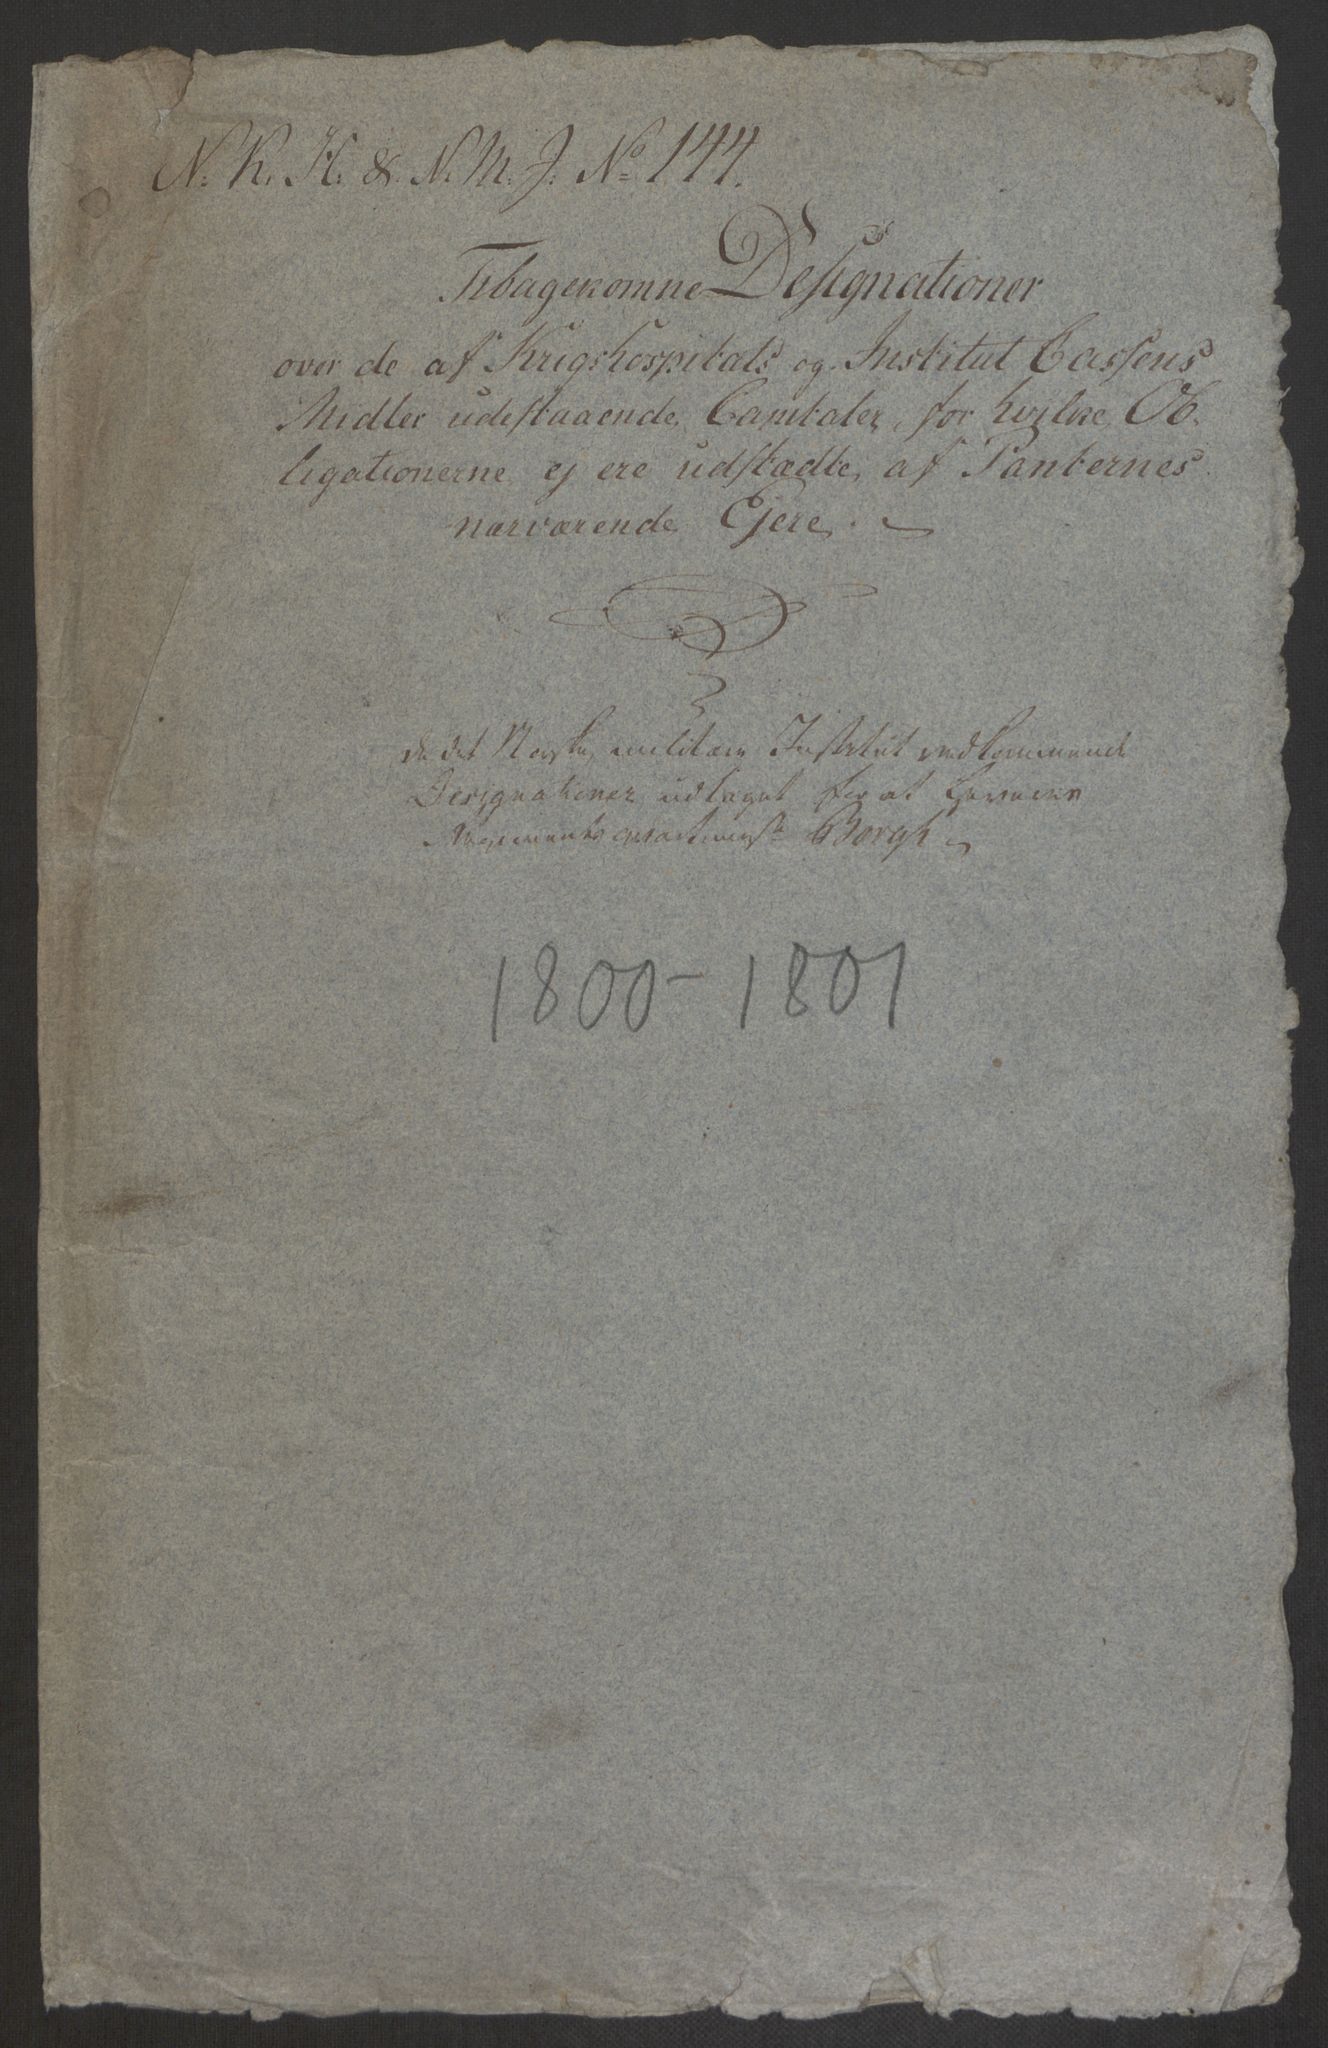 N. K. H. & N. M. J. No 144.
Tilbagekomne Designationer
over de af Krigshospitals og Institut Cassens
Midler udestaaende Capitaler, for hvilke Ob-
ligationerne ej ere udstædte af Panternes
nærværende Ejere.
de det Norske militaire Institut vedkommende
Designationer udtaget for at
Regimentsqvarteermestr Borgh
1800-1801